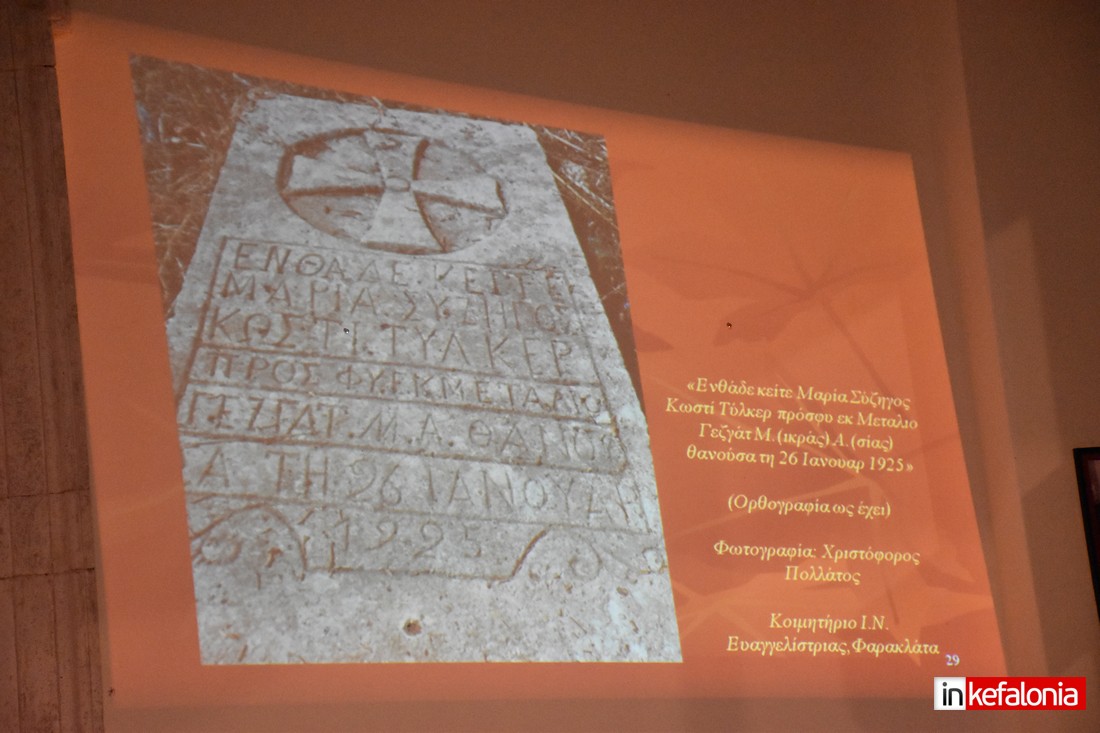 ΕΝΘΑΔΕ.ΚΕΙΤΕ
ΜΑΡΙΑ.ΣΥ.ΖΗΓΟΣ
ΚΩΣΤΙ.ΤΥΛΚΕΡ
ΠΡΟΣΦΥ.ΕΚΜΕΤΑΛΙΟ
ΓΕΖΓΑΤ.Μ.Α.ΘΑΝΟΥΣ
Α ΤΗ 26 ΙΑΝΟΥΑΡ
1925
«Ενθάδε κείτε Μαρία Σύζηγος
Κωστί Τύλκερ πρόσφυ εκ Μεταλιο
Γεζγάτ Μ.(ικράς) Α.(σίας)
θανούσα τη 26 Ιανουαρ 1925»
(Ορθογραφία ως έχει)
Φωτογραφία: Χριστόφορος
Πολλάτος
Κοιμητήριο Ι.Ν.
Ευαγγελίστριας, Φαρακλάτα
29
inkefalonia